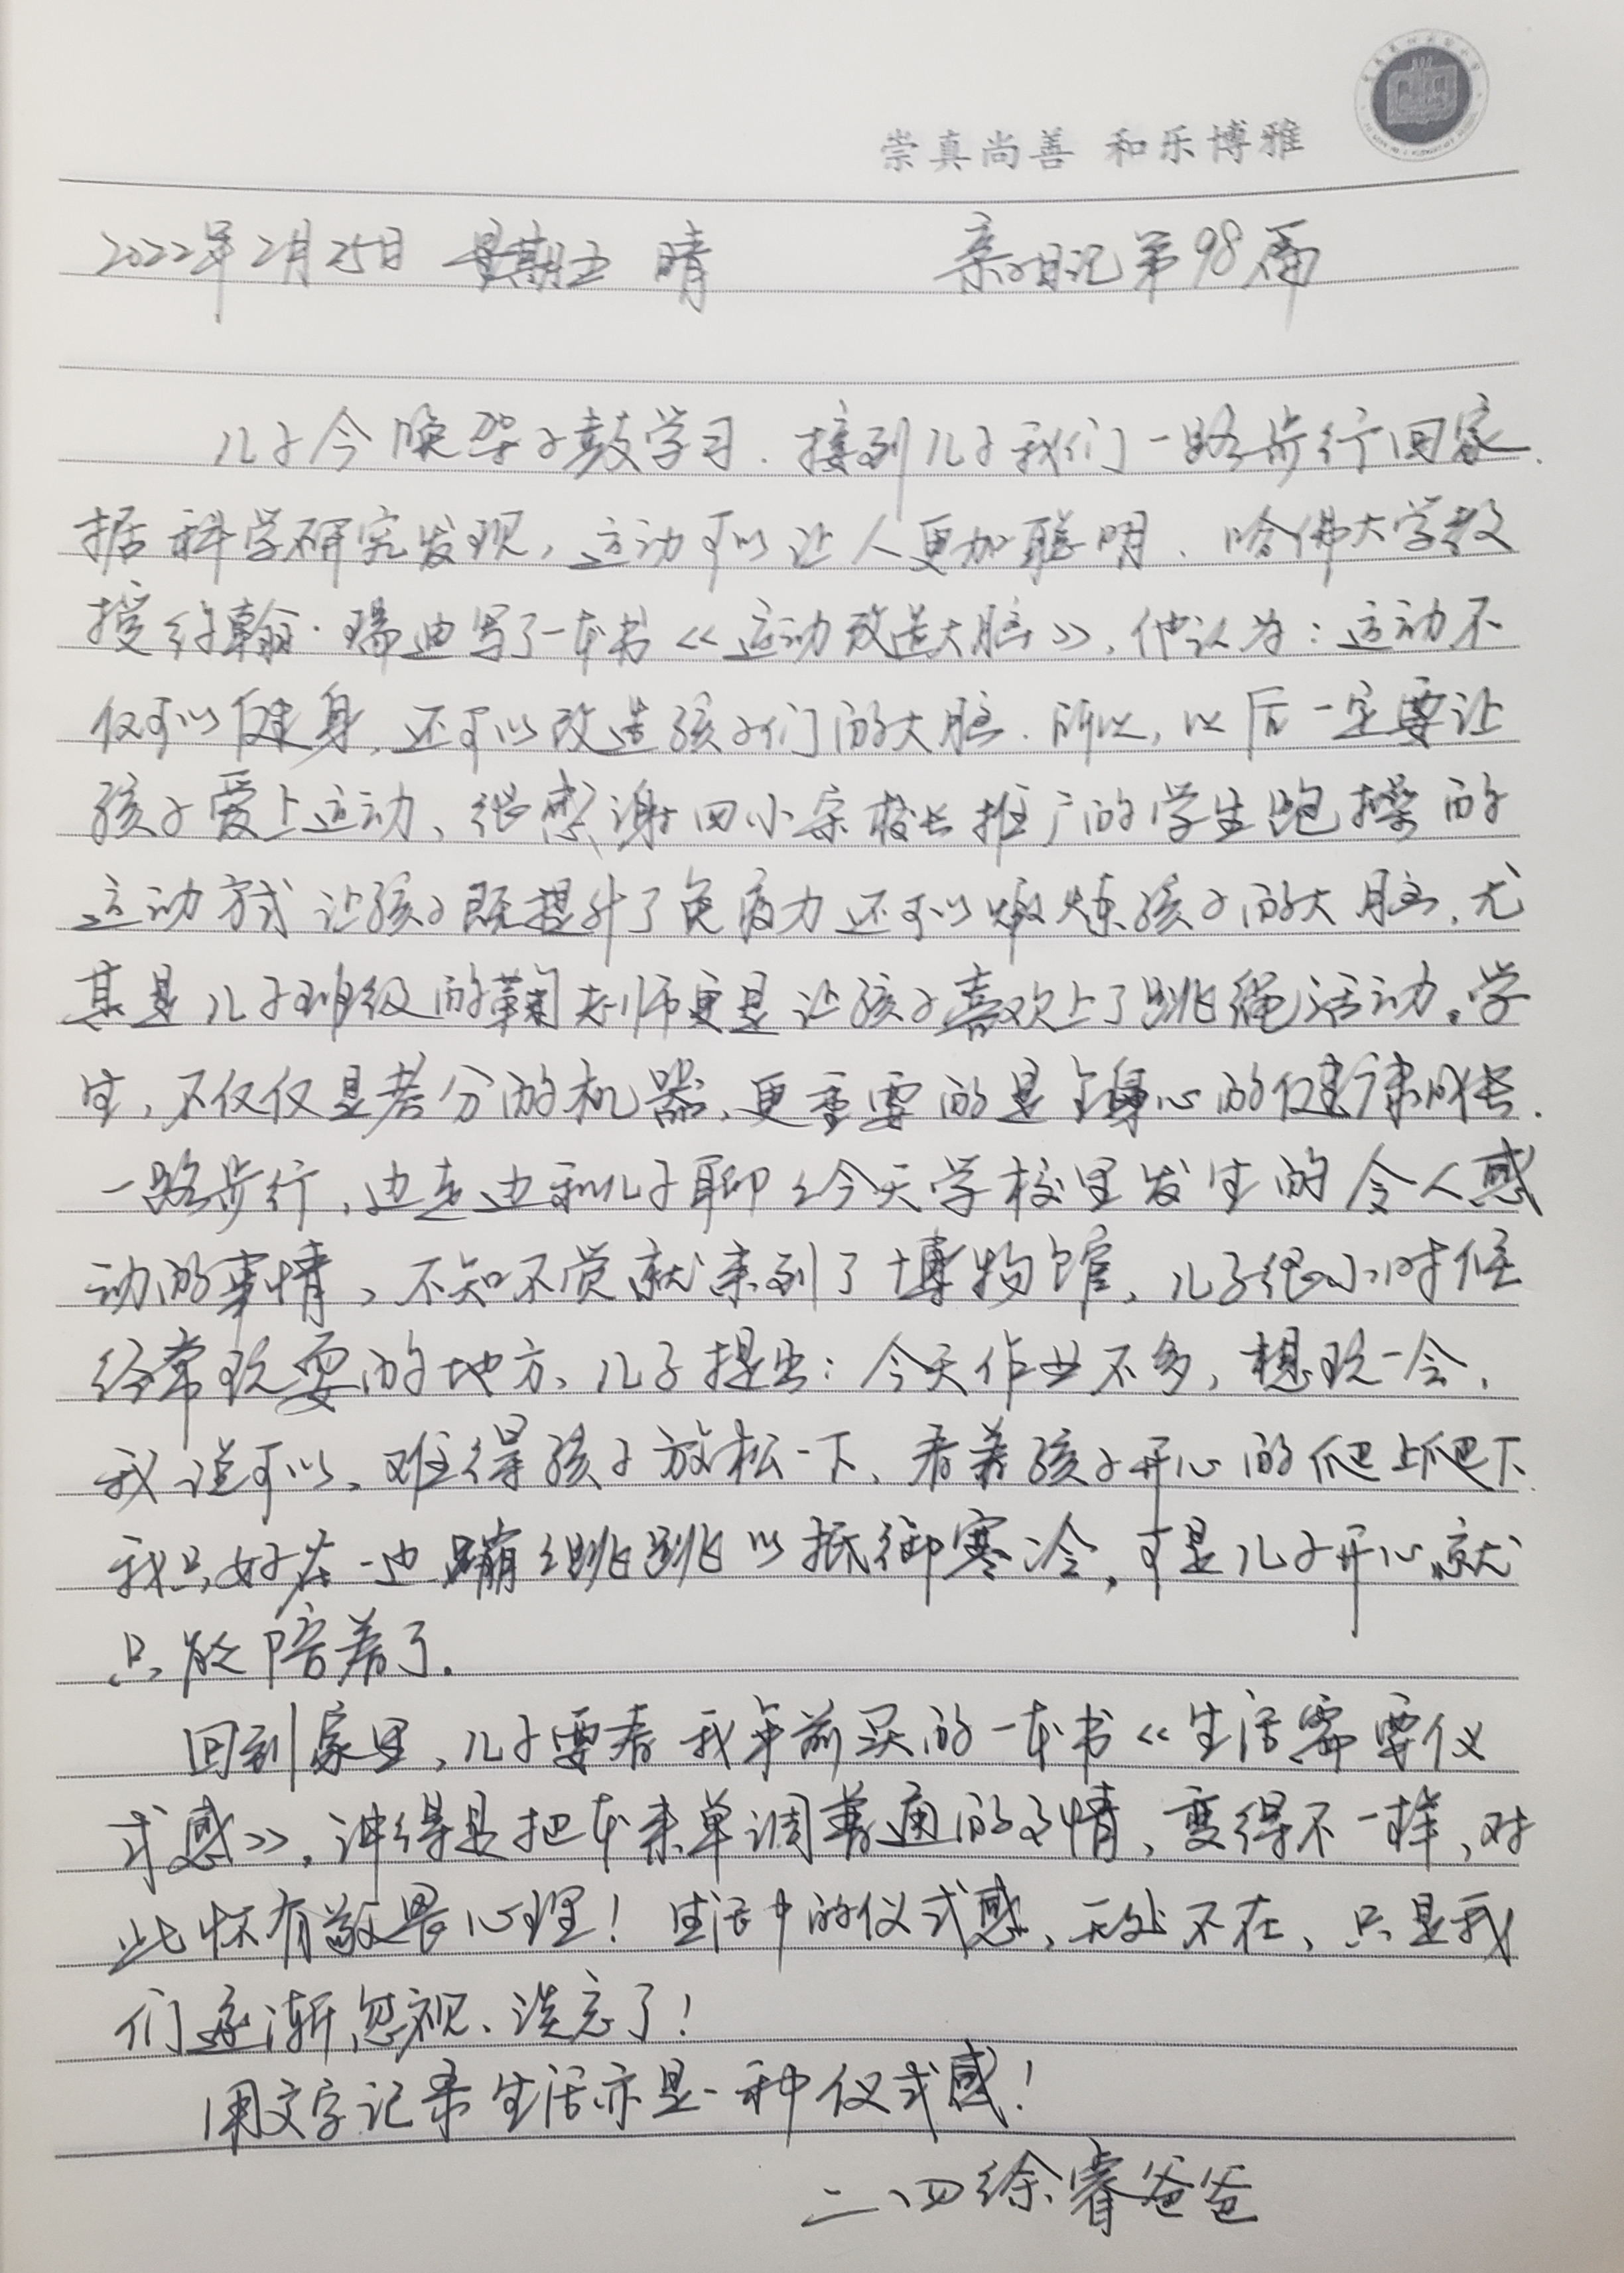 崇真尚善 和乐博雅
2022年2月25日 星期五 晴 亲子日记第98篇
儿子今晚架子鼓学习.接到儿子我们一路步行回家.
据科学研究发现,运动可以让人更加聪明、哈佛大学教
授约翰·瑞迪写了一本书《运动改造大脑》,他认为:运动不
仅可以健身,还可以改造孩子们的大脑.所以,以后一定要让
孩子爱上运动、很感谢四小宗校长推广的学生跑操的
运动方式让孩子既提升了免疫力还可以锻炼孩子的大脑,尤
其是儿子班级的蔺老师更是让孩子喜欢上了跳绳活动。学
生,不仅仅是考分的机器,更重要的是身心的健康成长.
一路步行,边走边和儿子聊聊今天学校里发生的令人感
动的事情、不知不觉就来到了博物馆,儿子很小时候
经常玩耍的地方、儿子提出:今天作业不多,想玩一会,
我说可以、难得孩子放松一下、看着孩子开心的爬上爬下.
我只好在一边蹦蹦跳跳以抵御寒冷,可是儿子开心就
只能陪着了.
回到家里,儿子要看我年前买的一本书《生活需要仪
式感》,讲得是把本来单调普通的事情,变得不一样,对
此怀有敬畏心理!生活中的仪式感,无处不在,只是我
们逐渐忽视、淡忘了!
用文字记录生活亦是一种仪式感!
二、四徐睿爸爸